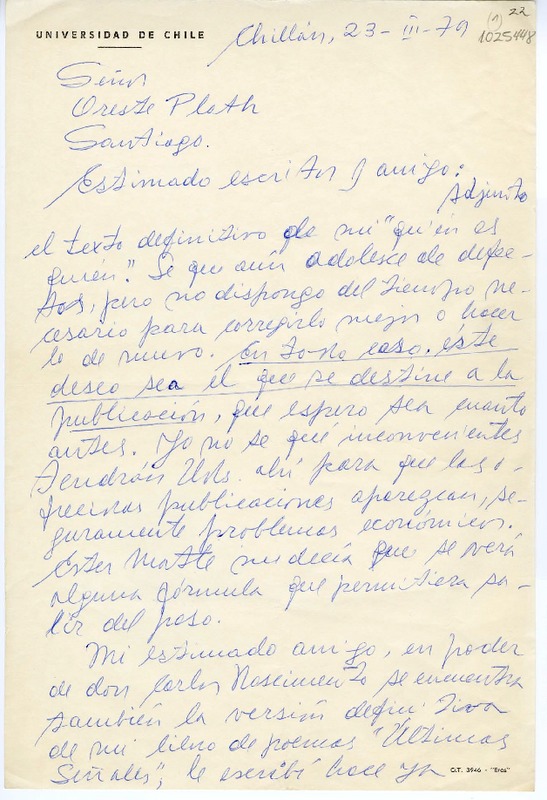 22
(1)
1025448
UNIVERSIDAD DE CHILE
Chillán, 23-III-79
Señor
Oreste Plath
Santiago.
Estimado escritor y amigo:
Adjunto
el texto definitivo de mi "quién es
quién". Se que aún adolesce de defec-
tos, pero no dispongo del tiempo ne-
cesario para corregirlo mejor o hacer
lo de nuevo. En todo caso, éste
deseo sea el que se destine a la
publicación, que espero sea cuanto
antes. Yo no se qué inconvenientes
tendrán Uds. ahí para que las
preciosas publicaciones aparezcan, se-
guramente problemas económicos.
Ester Matte me decía que se verá
alguna fórmula que permitiera sa-
lir del paso.
Mi estimado amigo, en poder
de don Carlos Nascimento se encuentra
también la versión definitiva
de mi libro de poemas "Últimas
Señales", le escribí hace ya
O.T. 3946 - "Eros"